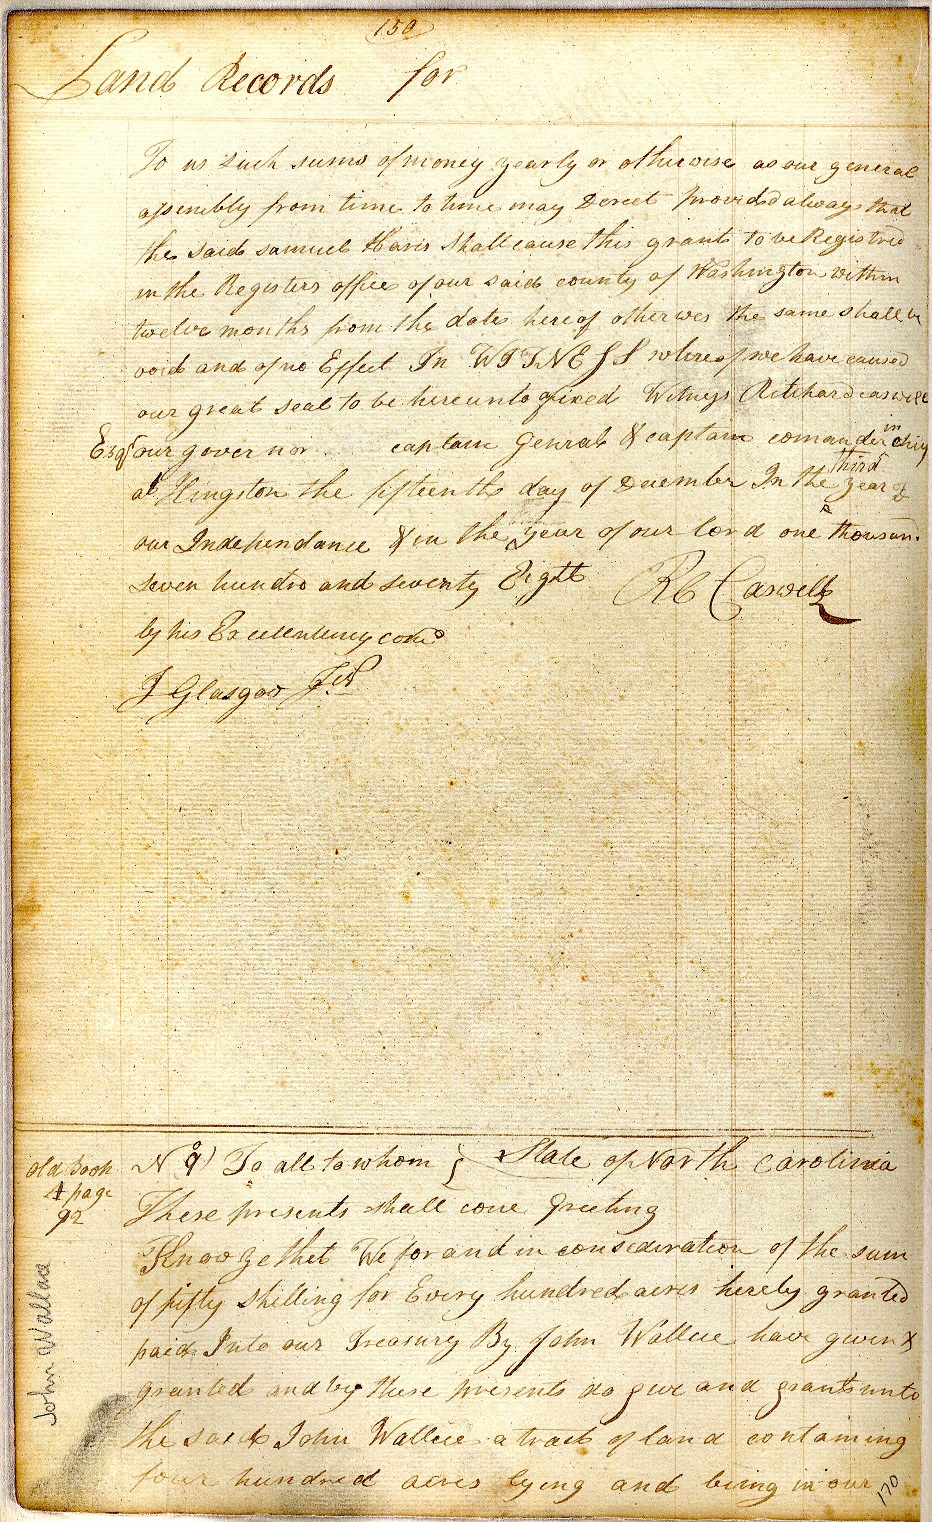 150
Land Records for
To us such sums of money yearly or otherwise as our general
assembly from time to time may Derect provided always that
the said samuel Haris shall cause this grant to be Registred
in the Registers office of our said county of Washington within
twelve months from the date here of otherwes the same shall be
void and of no Effect In WITNESS where of we have caused
our great seal to be hereunto afixed Witness Ritchard caswell
Esqr our governor captain Genral & captain comander in chief
at Kingston the fifteenth day of December In the third year of
our Independance & in the year of our lord one thousan
seven hundro and seventy Eight Rd Caswell
by his Excellency comd
J Glasgow Sec
Old Book
A page
92
No 9) To all to whom } State of North Carolinia
These presents shall come Greeting
Know ye thet We for and in consederation of the sum
of fifty shilling for Every hundred acres hereby granted
paid Into our Treasury By John Wallace have given &
granted and by these presents do give and grant unto
the said John Wallace a tract of land containing
four hundred acres lying and being in our
John Wallace
170